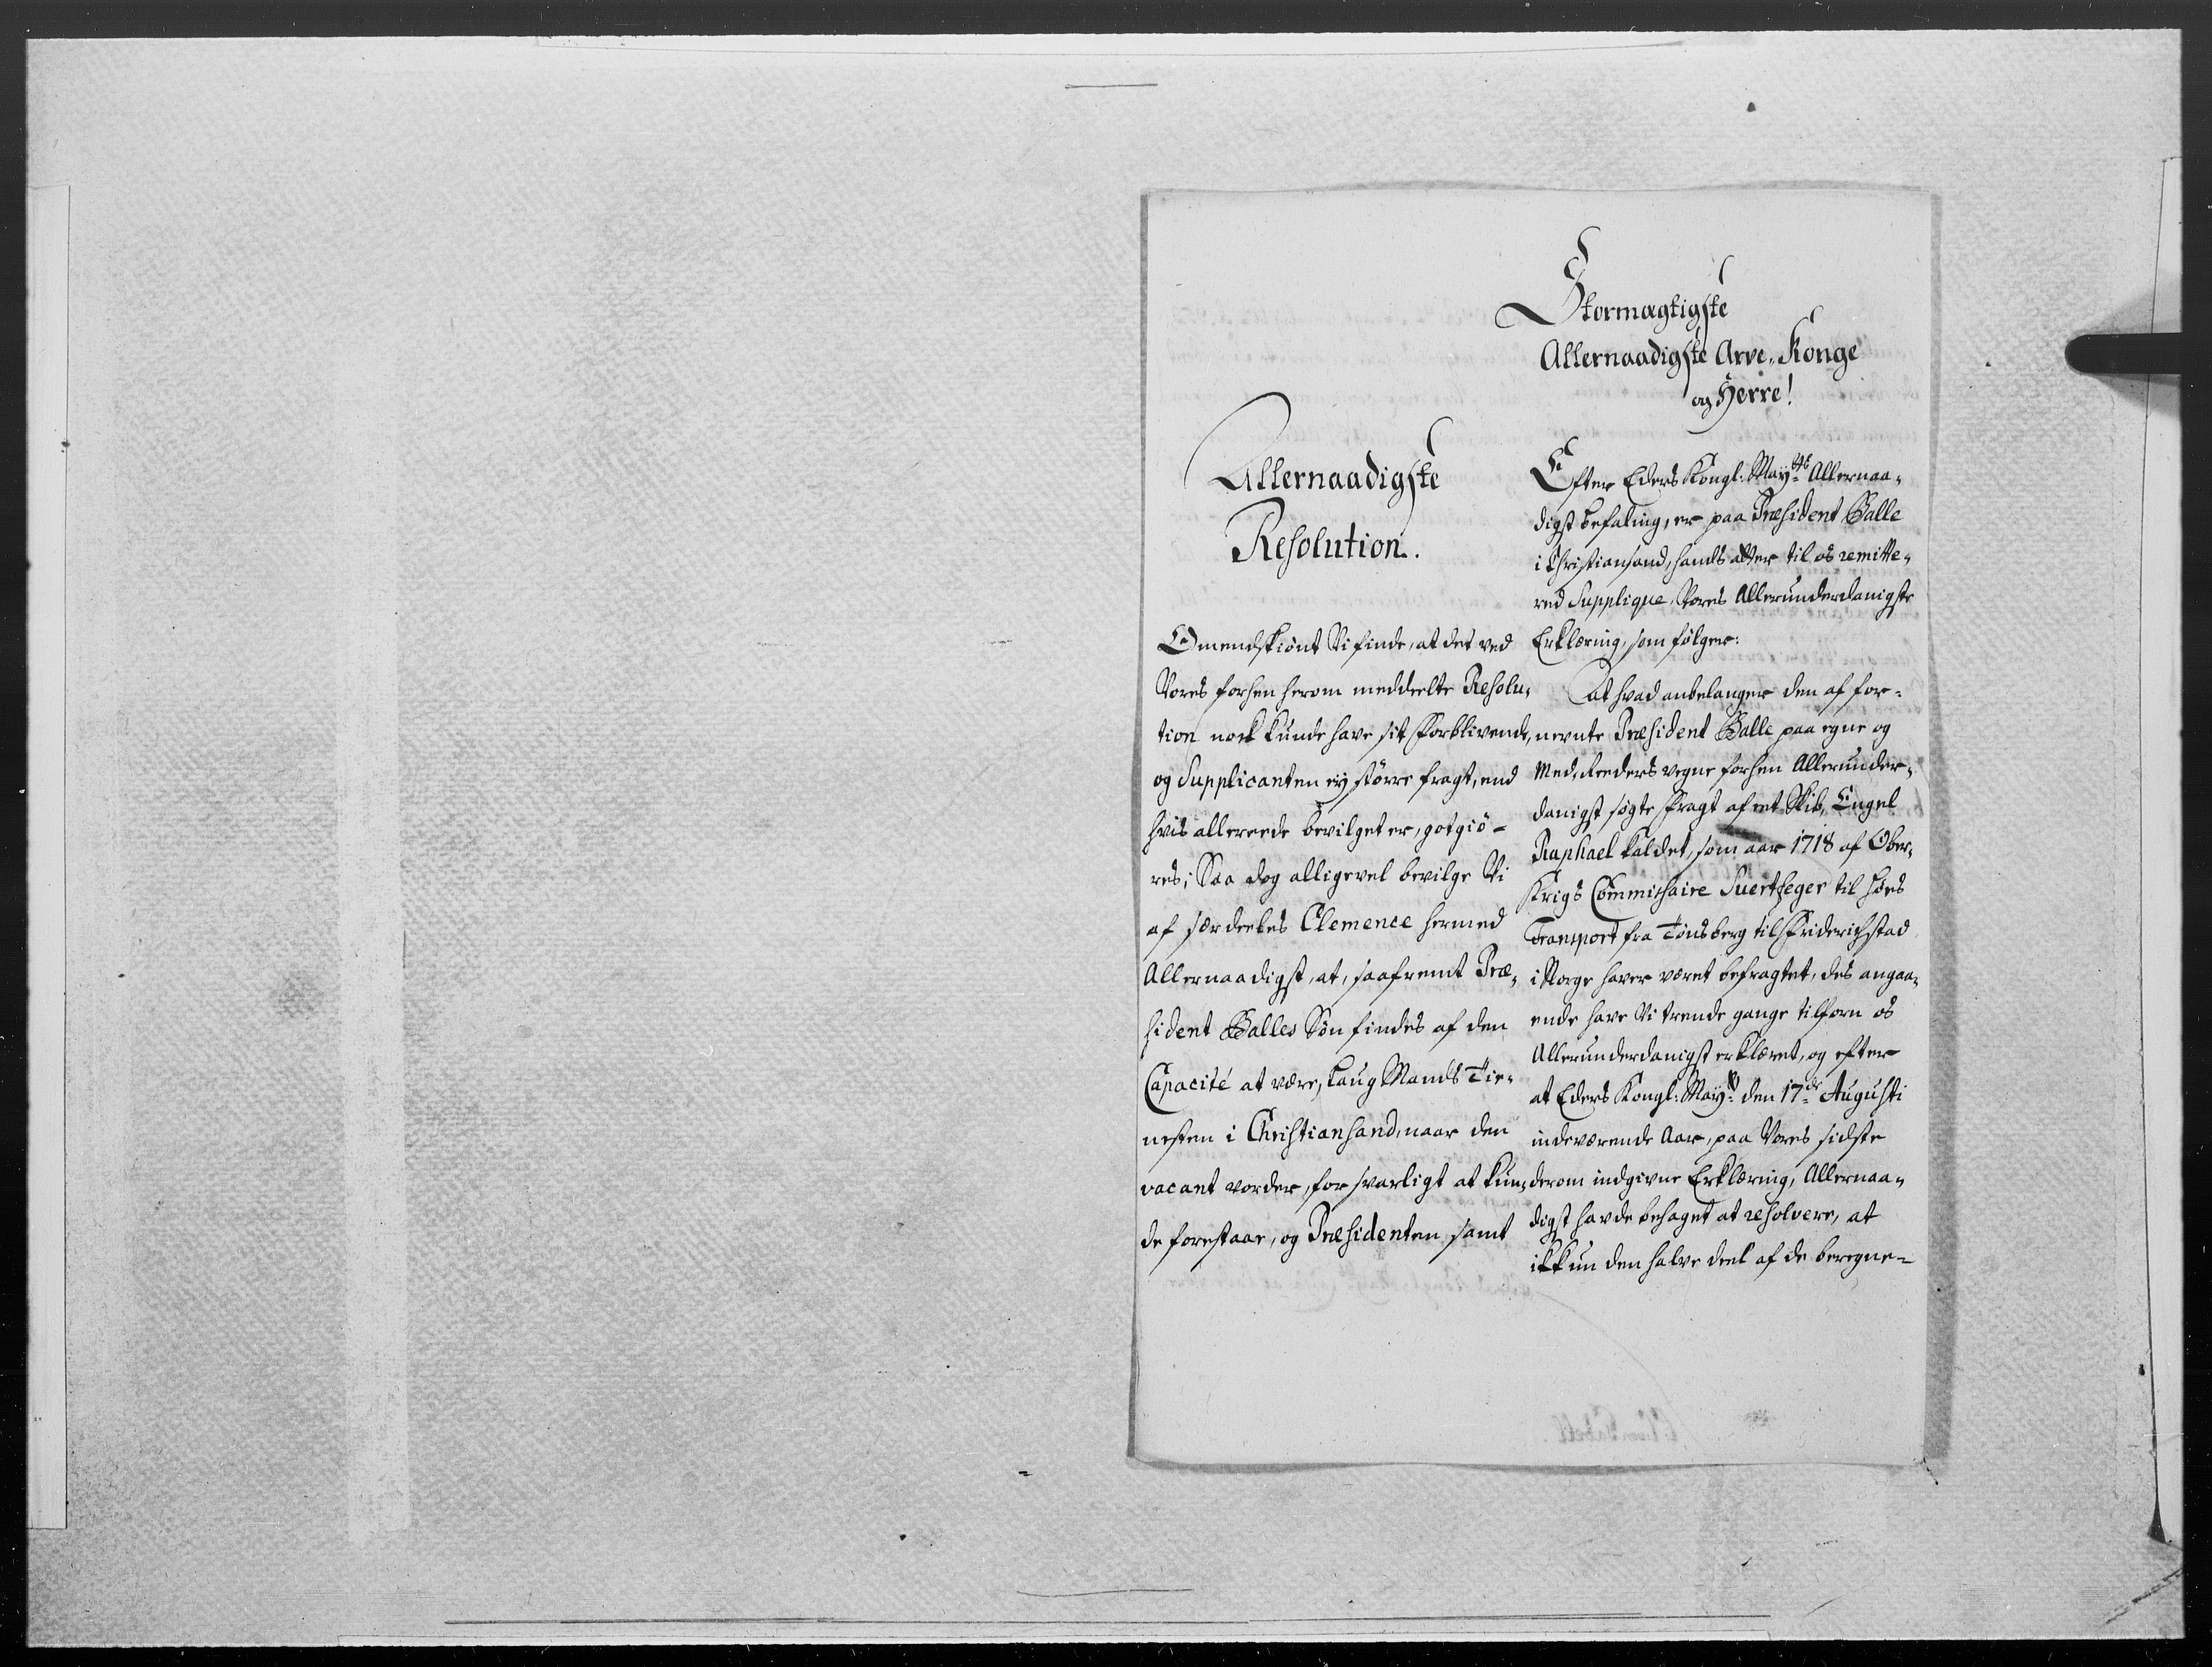 Stormægtigste
Allernaadigste Arve-Konge
og Herre!
Efter Eders Kongl: May:ts Allernaa-
digst befaling, er paa Præsident Balle
i Christiansand, hands atter til os remitte-
red Supplique, Vores Allerunderdanigste
Erklæring, som følger:
At hvad anbelanger den af for-
nevnte Præsident Balle paa egne og
Med-Reeders vegne forhen Allerunder-
danigst søgte Fragt af et Skib, Engel
Raphael kaldet, som aar 1718 af Ober-
Krigs Commissaire Suertfeger til Høes
Transport fra Tønsberg til Friderichstad
i Norge haver været befragtet, des angaa-
ende have Vi trende gange tilforn os
Allerunderdanigst erklæret, og efter
at Eders Kongl: May:t den 17de Augusti
indeværende Aar, paa Vores sidste
derom indgivne Erklæring, Allernaa-
digst havde behaget at resolvere, at
ikkun den halve deel af de beregne-
Allernaadigste
Resolution.
Omendskiønt Vi finde, at det ved
Vores forhen herom meddeelte Resolu-
tion nock kunde have sit Forblivende,
og Supplicanten ey større fragt, end
hvis allereede bevilget er, gotgiø-
res; Saa dog alligevel bevilge Vi
af særdeeles Clemence hermed
Allernaadigst, at, saafremt Præ-
sident Balles Søn findes af den
Capacité at være, Laug Mands Tie-
nesten i Christiansand, naar den
vacant vorder, forsvarligt at kun-
de forestaae, og Præsidenten samt